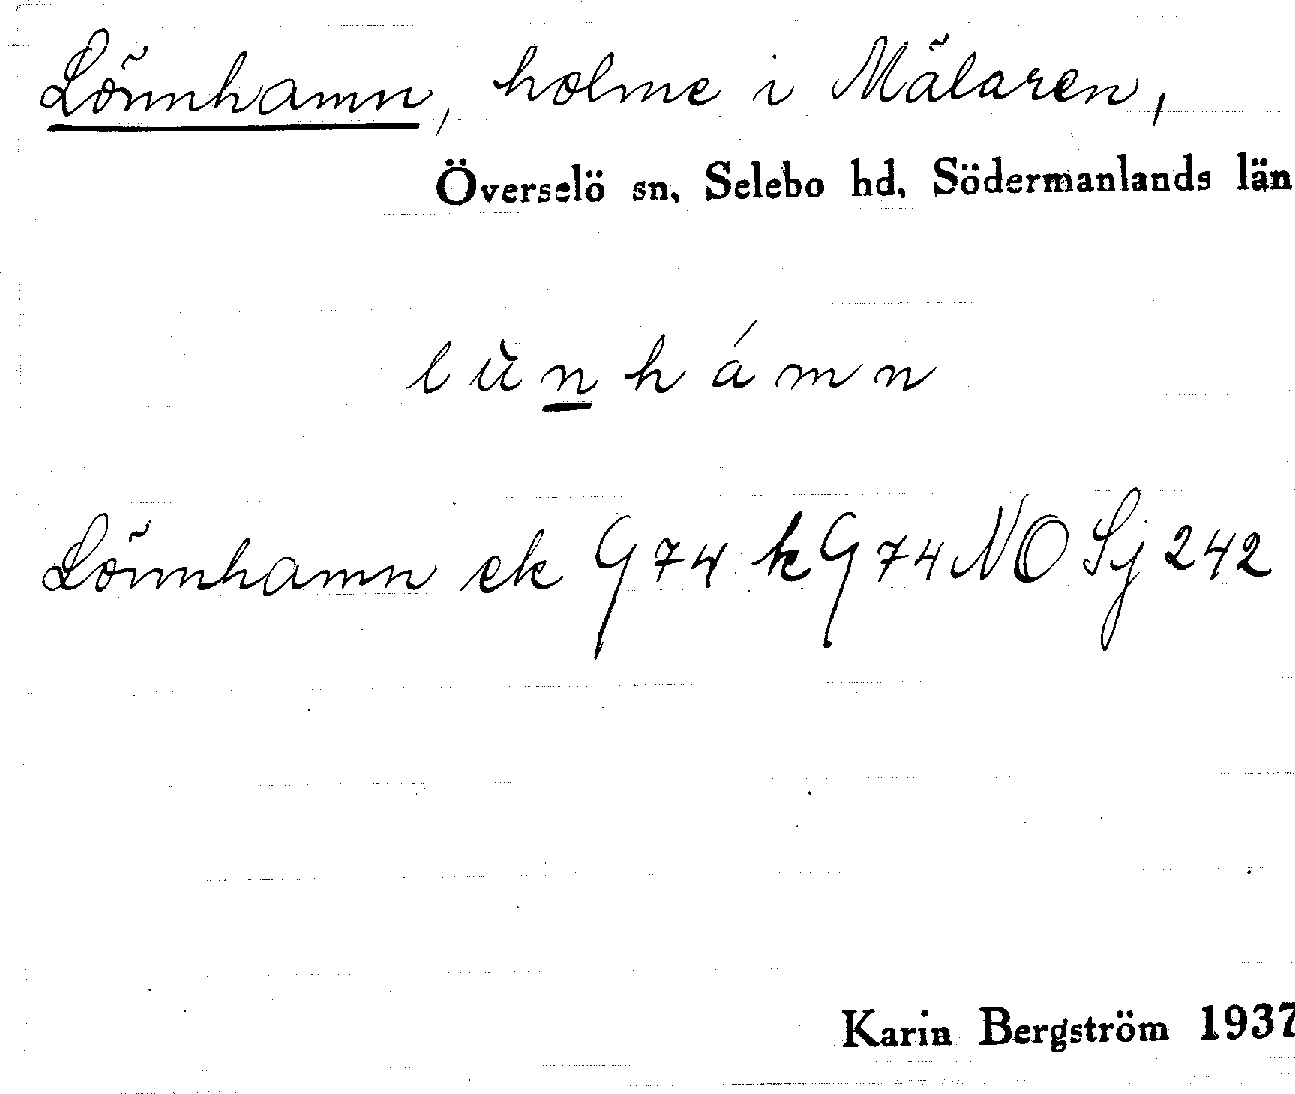 Lönnhamn, holme i Mälaren,
Överselö sn, Selebo hd, Södermanlands län
lùnhámn
Lönnhamn ek G74 kG74NO Sj 242
Karin Bergström 1937